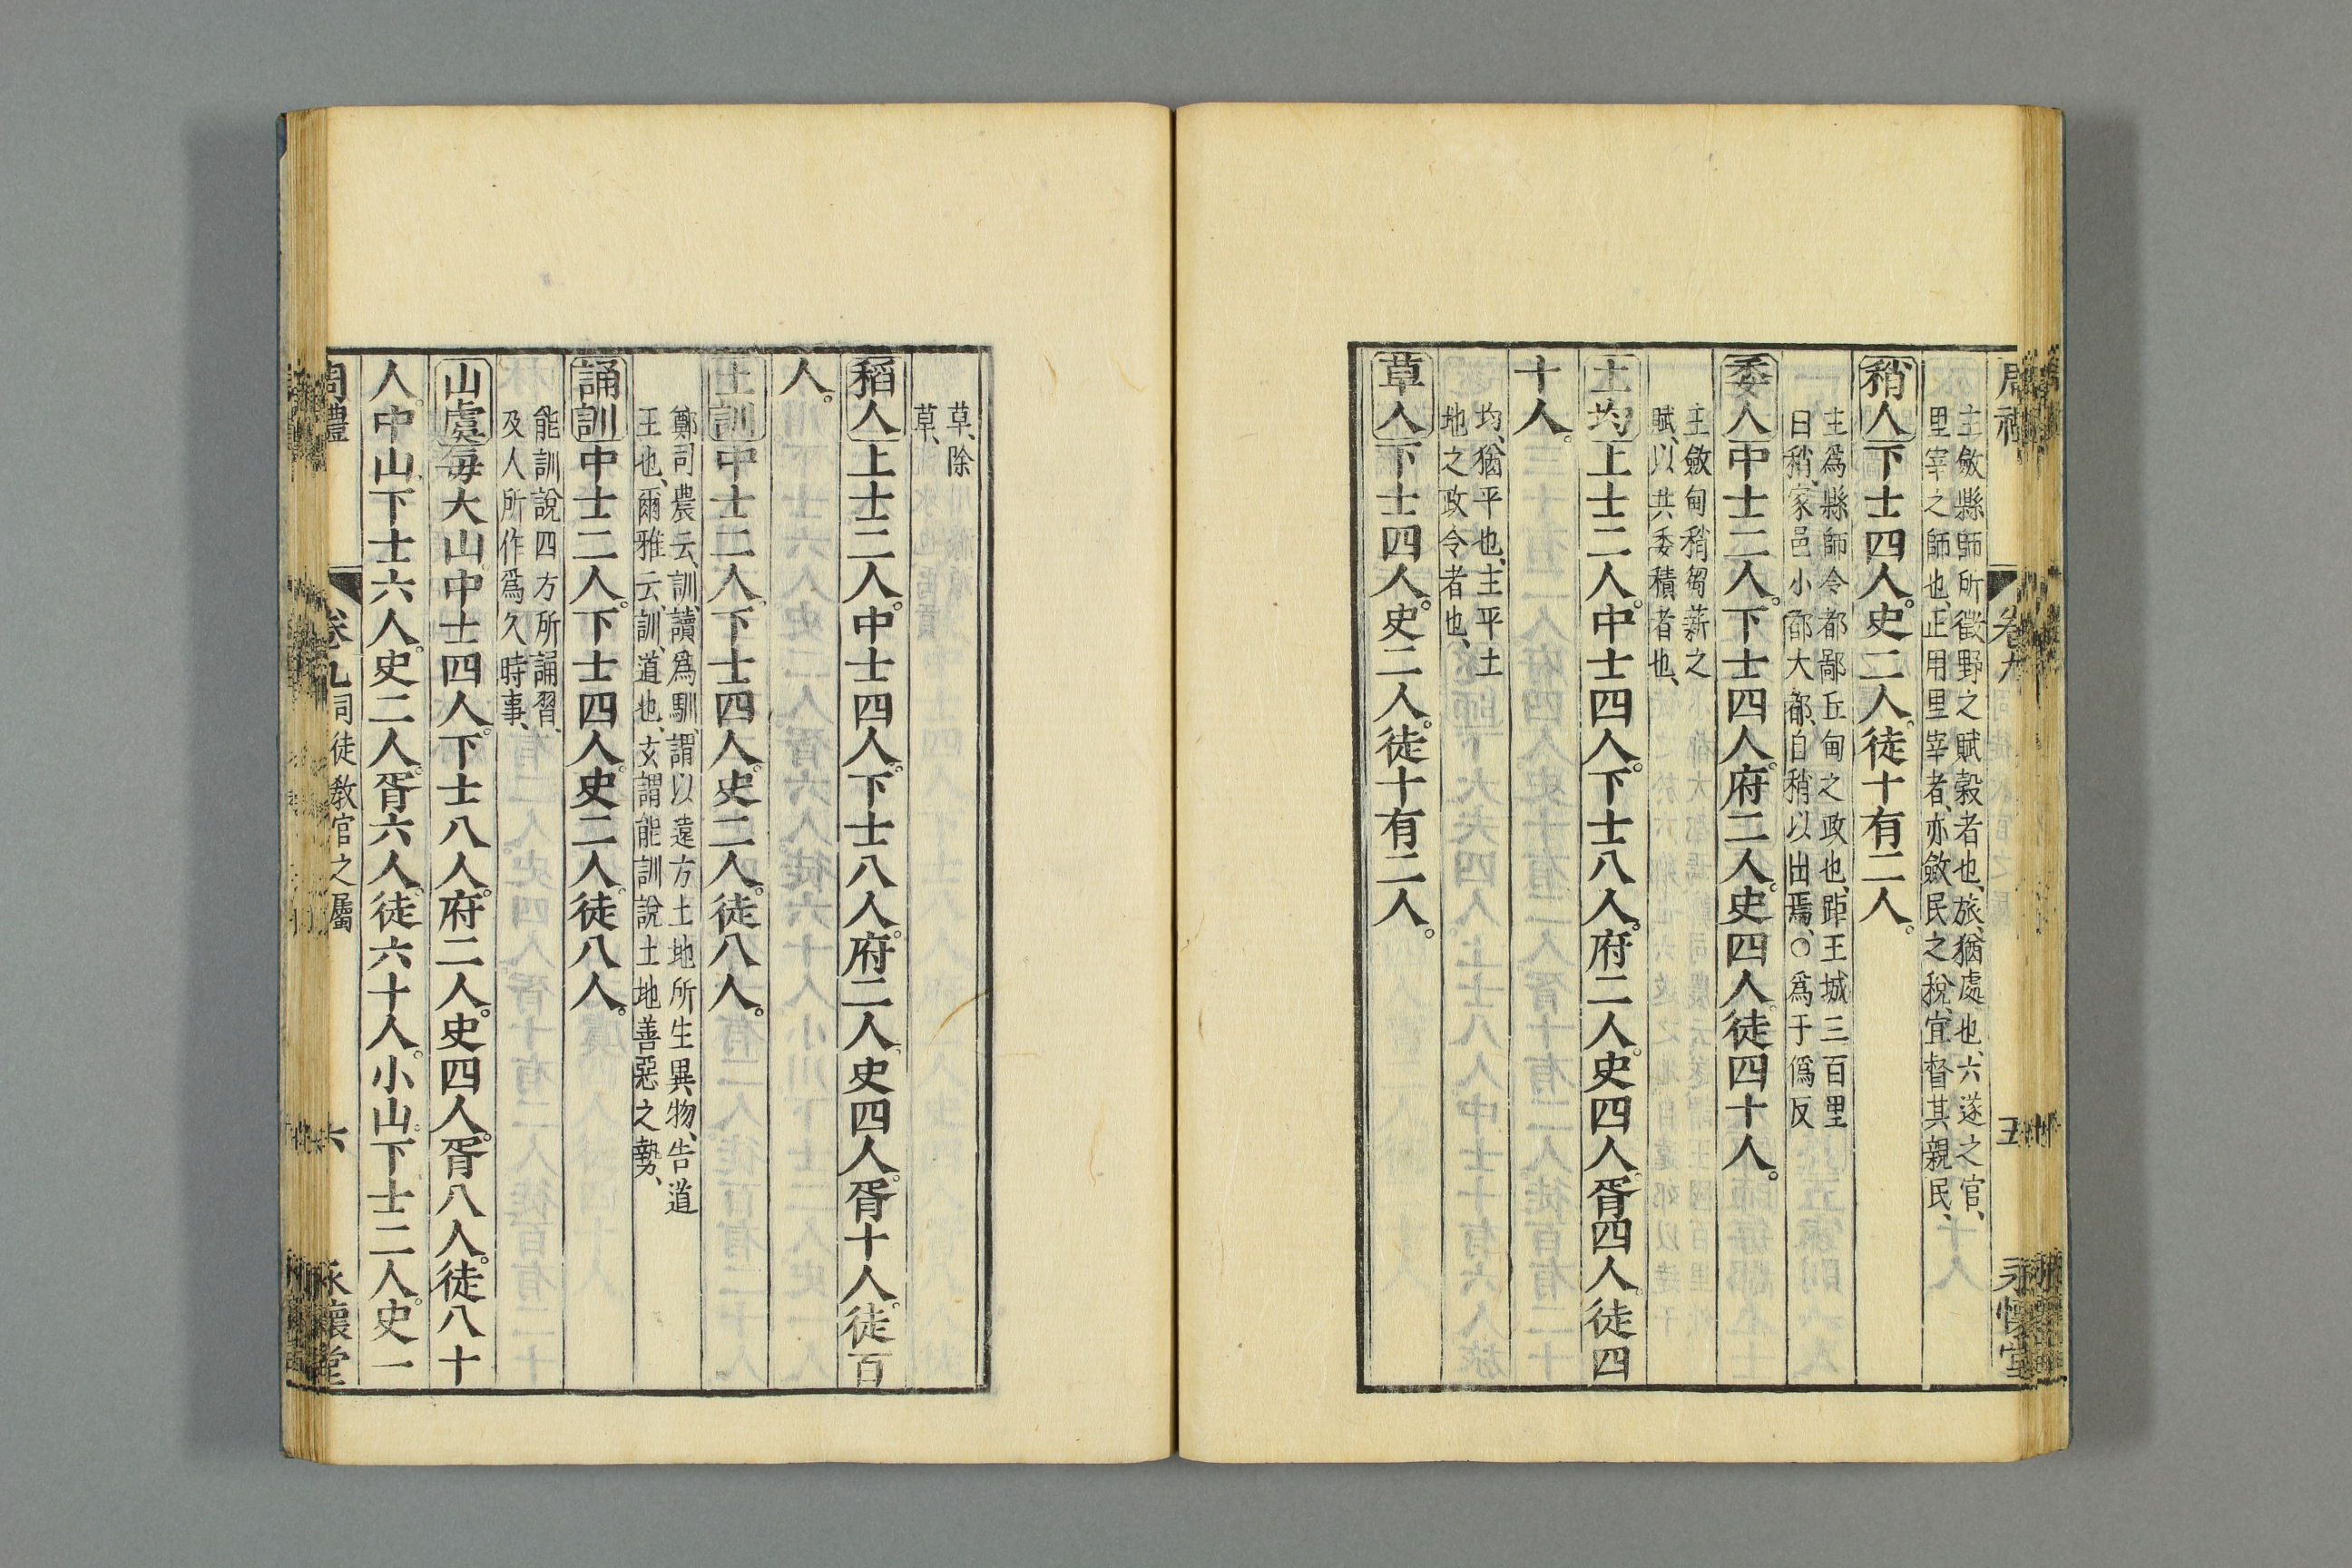 周禮 卷九 五 永懷堂
主斂縣師所徵野之賦穀者也、旅、猶處也、六遂之官、
里宰之師也、正用里宰者、亦斂民之稅、宜督其親民、
稍人下士四人。史二人。徒十有二人。
主爲縣師令都鄙丘甸之政也、距王城三百里
曰稍、家邑小都大都、自稍以出焉、○爲于僞反
委人中士二人。下士四人。府二人。史四人。徒四十人。
主斂甸稍芻薪之
賦、以共委積者也、
土均上士二人。中士四人。下士八人。府二人。史四人。胥四人。徒四
十人。
均、猶平也、主平土
地之政令者也、
草人下士四人。史二人。徒十有二人。
草、除
草、
稻人上士二人。中士四人。下士八人。府二人。史四人。胥十人。徒百
人。
土訓中士二人。下士四人。史二人。徒八人。
鄭司農云、訓、讀爲馴、謂以遠方土地所生異物、告道
王也、爾雅云、訓、道也、玄謂能訓說土地善惡之勢、
誦訓中士二人。下士四人。史二人。徒八人。
能訓說四方所誦習、
及人所作爲久時事、
山虞每大山。中士四人。下士八人。府二人。史四人。胥八人。徒八十
人。中山。下士六人。史二人。胥六人。徒六十人。小山。下士二人。史一
周禮 卷九 司徒教官之屬 六 永懷堂